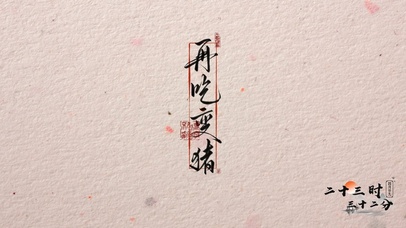 再吃变猪
二十三时
三十二分